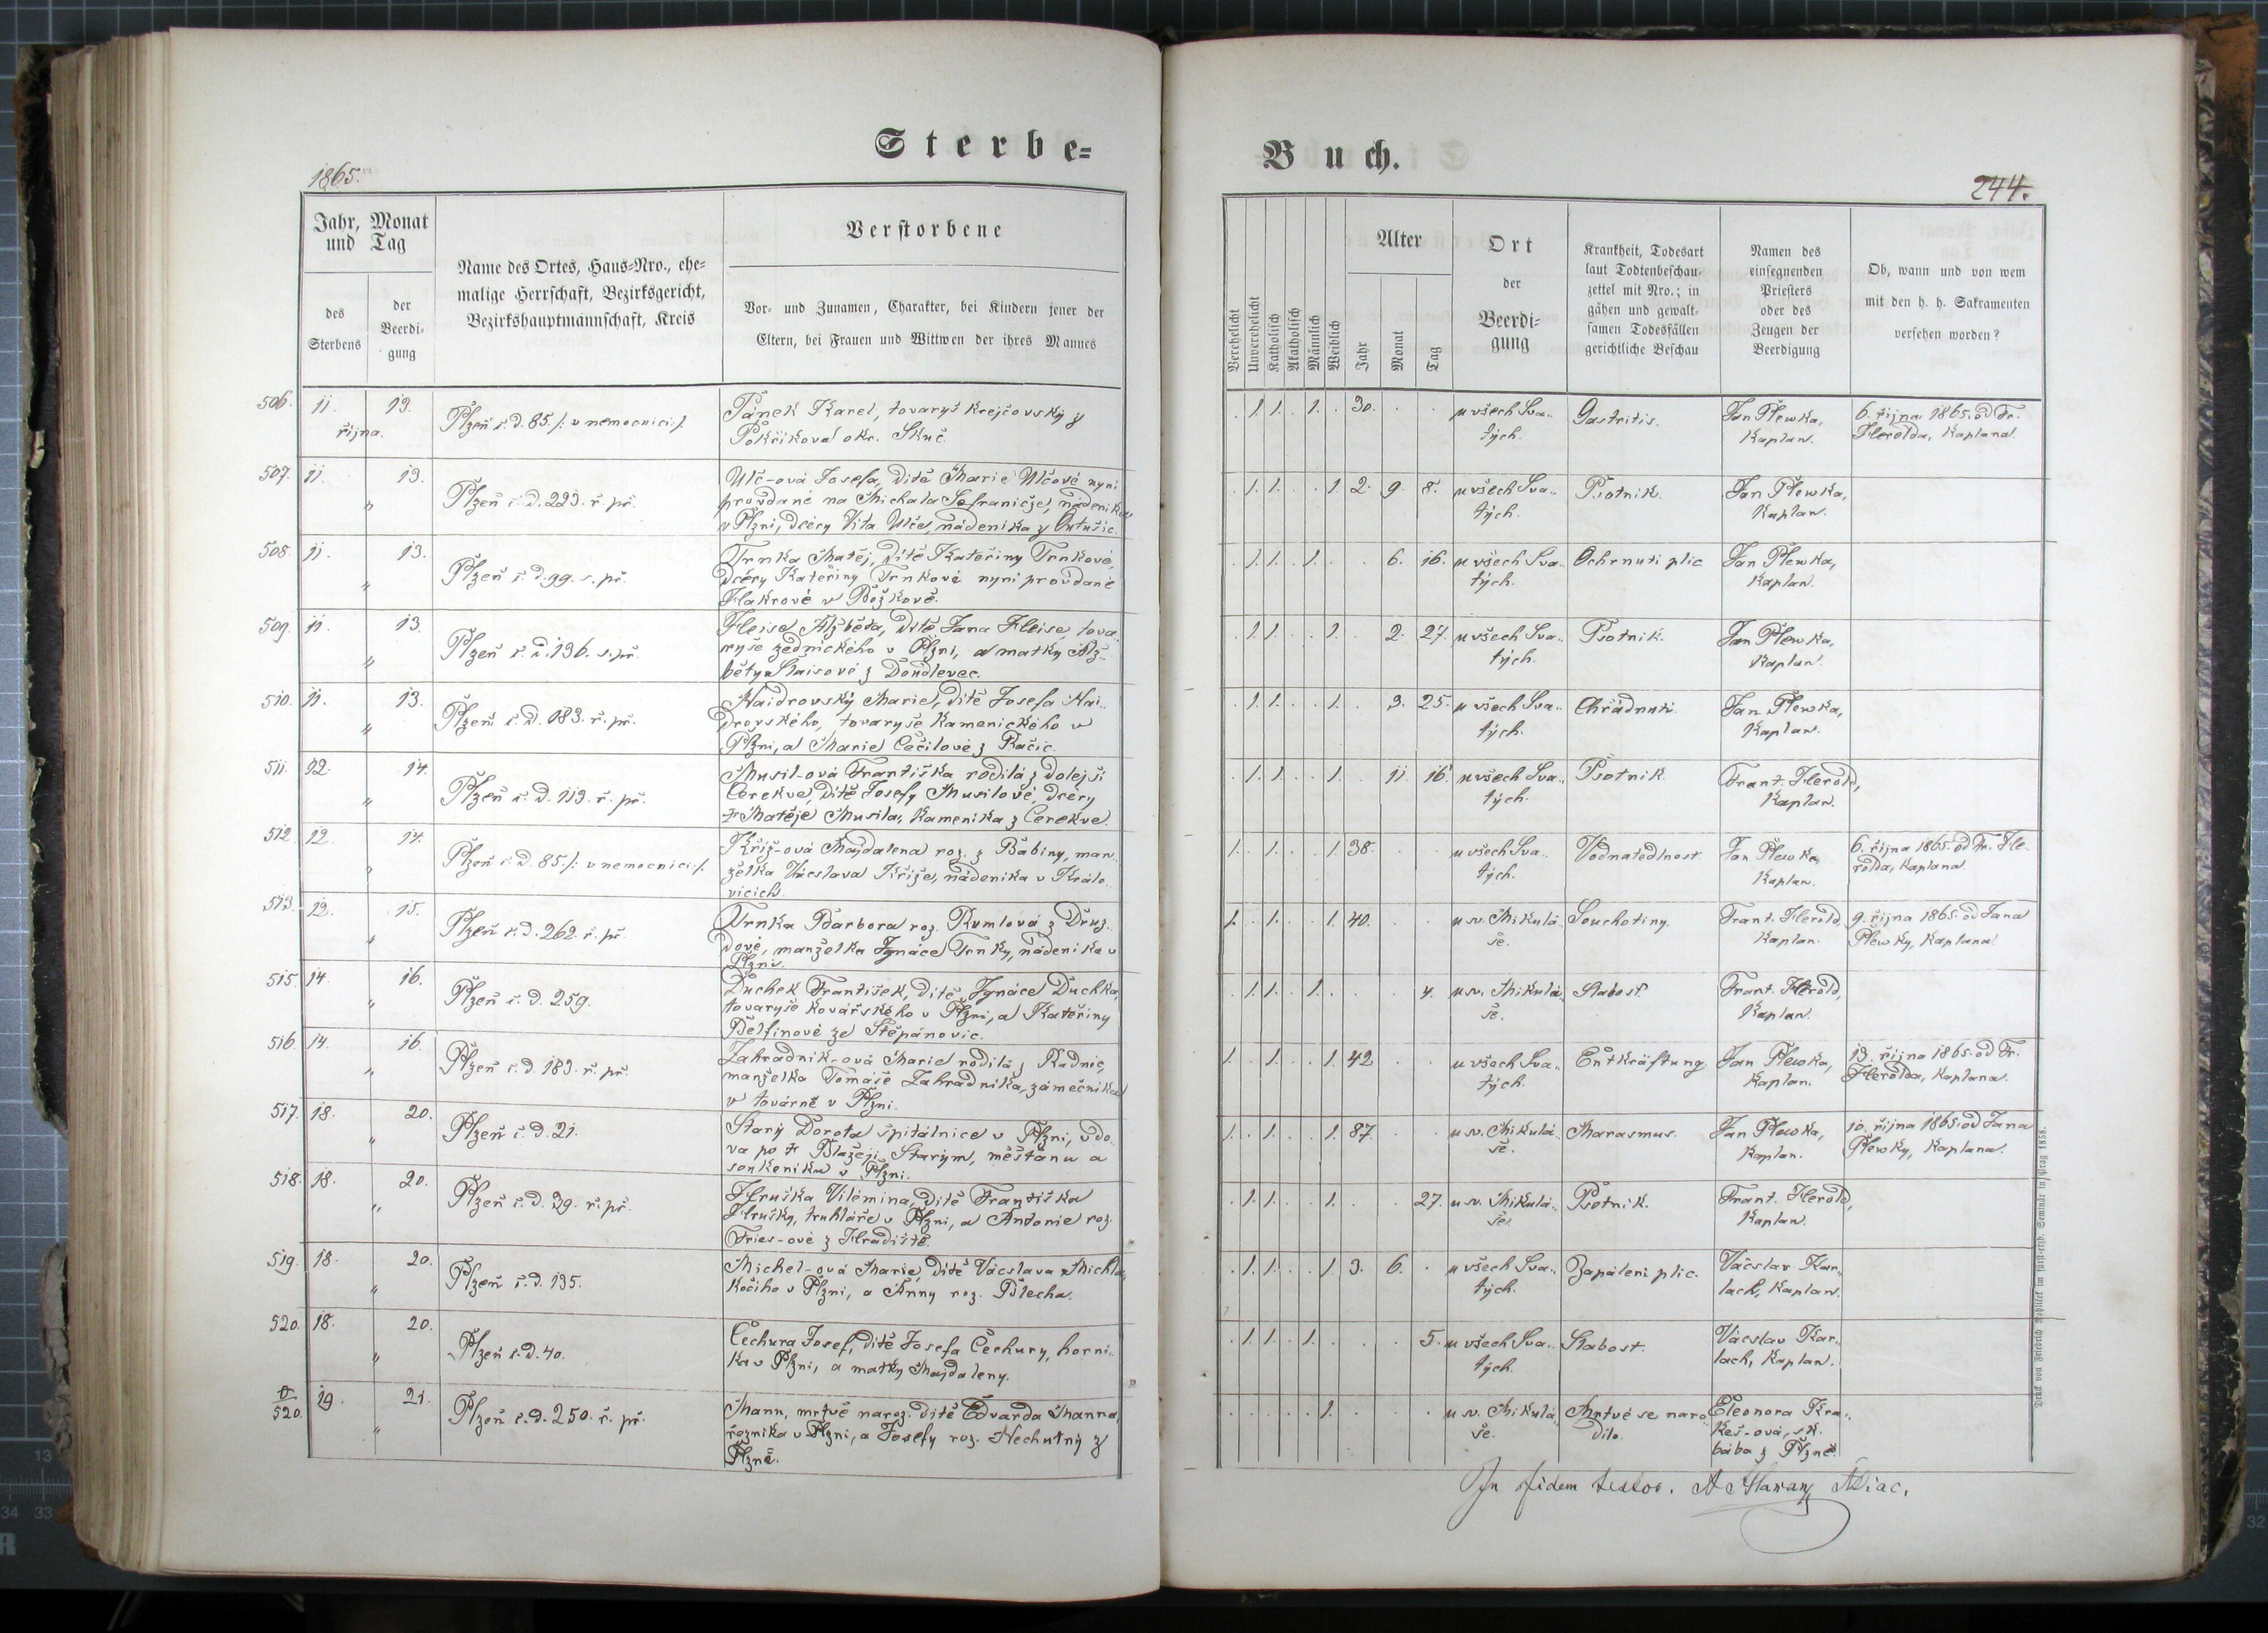 Sterbe-
1865.
Jahr, Monat
und Tag
des
Sterbens
der
Beerdi-
gung
Name des Ortes, Haus-Nro., ehe-
malige Herrschaft, Bezirksgericht,
Bezirkshauptmannschaft, Kreis
Verstorbene
Vor- und Zunamen, Charakter, bei Kindern jener der
Eltern, bei Frauen und Wittwen der ihres Mannes
506. 11. 13.
října.
Plzeň č.d. 85. /: v nemocnici :/
Pánek Karel, tovaryš krejčovský z
Pokřikova okr. Skuč.
507. 11. 13.
"
Plzeň č.d. 223. ř. př.
Ulč-ová Josefa, dítě Marie Ulčové nyní
provdané na Michala Šafraniče, nádeníka
v Plzni, dcery Víta Ulče, nádeníka z
508. 11. 13.
"
Plzeň č.d. 99. s. př.
Trnka Matěj, dítě Kateřiny Trnkové,
dcery Kateřiny Trnkové nyní provdané
Flakrové v Božkově.
509. 11. 13.
"
Plzeň č.d. 136. s. př.
Fleise Alžběta, dítě Jana Fleise, tova-
ryše zednického v Plzni, a matky Alž-
běty Slaisové z Doudlevec.
510. 11. 13.
"
Plzeň č.d. 183. ř. př.
Naidrovský Marie, dítě Josefa Nai-
drovského, tovaryše kamenického v
Plzni, a Marie Cečilové z Račic.
511. 12. 14.
"
Plzeň č.d. 113. ř. př.
Musil-ová Františka rodilá z Dolejší
Cerekve, dítě Josefy Musilové, dcery
† Matěje Musila, kameníka z Cerekve.
512. 12. 14.
"
Plzeň č.d. 85. /: v nemocnici :/.
Kříž-ová Majdalena roz. z Babiny, man-
želka Václava Kříže, nádeníka v Králo-
vicích.
513. 12. 15.
"
Plzeň č.d. 262. ř. př.
Trnka Barbora roz. Rumlová z Druz-
dové, manželka Ignáce Trnky, nádeníka v
Plzni.
515. 14. 16.
"
Plzeň č.d. 259.
Duchek František, dítě Ignáce Duchka,
tovaryše kovářského v Plzni, a Kateřiny
Delfinové ze Štěpánovic.
516. 14. 16.
"
Plzeň č.d. 183. ř. př.
Zahradník-ová Marie rodilá z Radnic,
manželka Tomáše Zahradníka, zámečníka
v továrně v Plzni.
517. 18. 20.
"
Plzeň č.d. 21.
Starý Dorota špitálnice v Plzni, vdo-
va po † Blažeji Starým, měštanu a
soukeníku v Plzni.
518. 18. 20.
"
Plzeň č.d. 39. ř. př.
Hruška Vilémina, dítě Františka
Hrušky, truhláře v Plzni, a Antonie roz.
Fries-ové z Hradiště.
519. 18. 20.
"
Plzeň č.d. 135.
Michel-ová Marie, dítě Václava Michla
kočího v Plzni, a Anny roz. Blecha.
520. 18. 20.
"
Plzeň č.d. 40.
Čechura Josef, dítě Josefa Čechury, horní-
ka v Plzni, a matky Majdaleny.
520. 19. 21.
"
Plzeň č.d. 250. ř. př.
Mann, mrtvě naroz. dítě Edvarda Manna,
řezníka v Plzni, a Josefy roz. Nechutný z
Plzně.
Buch.
244.
Verehelicht
Unverehelicht
Katholisch
Akatholisch
Männlich
Weiblich
Alter
Jahr
Monat
Tag
Ort
der
Beerdi-
gung
Krankheit, Todesart
laut Todtenbeschau-
zettel mit Nro.; in
gähen und gewalt-
samen Todesfällen
gerichtliche Beschau
Namen des
einsegnenden
Priesters
oder des
Zeugen der
Beerdigung
Ob, wann und von wem
mit den h. h. Sakramenten
versehen worden?
. 1. 1. . 1. . 30. . . u všech Sva-
tých.
Gastritis.
Jan Plewka,
Kaplan.
6. října 1865. od Fr.
Herolda, Kaplana.
. 1. 1. . . 1. 2. 9. 8. u všech Sva-
tých.
Psotník.
Jan Plewka,
Kaplan.
. 1. 1. . 1. . . 6. 16. u všech Sva-
tých.
Ochrnutí plic
Jan Plewka,
Kaplan.
. 1. 1. . . 1. . 2. 27. u všech Sva-
tých.
Psotník.
Jan Plewka,
Kaplan.
. 1. 1. . . 1. . 3. 25. u všech Sva-
tých.
Chřadnutí.
Jan Plewka,
Kaplan.
. 1. 1. . . 1. . 11. 16. u všech Sva-
tých.
Psotník.
Frant. Herold,
Kaplan.
1. . 1. . . 1. 38. . . u všech Sva-
tých.
Vodnatedlnost.
Jan Plewka,
Kaplan.
6. října 1865. od Fr. He-
rolda, Kaplana.
1. . 1. . . 1. 40. . . u sv. Mikulá-
še.
Souchotiny.
Frant. Herold,
Kaplan.
9. října 1865. od Jana
Plewky, Kaplana.
. 1. 1. . 1. . . . 4. u sv. Mikulá-
še.
Slabost.
Frant. Herold,
Kaplan.
1. . 1. . . 1. 42 . . u všech Sva-
tých.
Entkräftung
Jan Plewka,
Kaplan.
13. října 1865. od Fr.
Herolda, Kaplana.
1. . 1. . . 1. 87. . . u sv. Mikulá-
še.
Marasmus.
Jan Plewka,
Kaplan.
10. října 1865. od Jana
Plewky, Kaplana.
. 1. 1. . . 1. . . 27. u sv. Mikulá-
še.
Psotník.
Frant. Herold,
Kaplan.
. 1. 1. . . 1. 3. 6. . u všech Sva-
tých.
Zapálení plic.
Václav Kar-
lach, Kaplan.
. 1. 1. . 1. . . . 5. u všech Sva-
tých.
Slabost.
Václav Kar-
lach, Kaplan.
. . . . . 1. . . . u sv. Mikulá-
še.
Mrtvé se naro-
dilo.
Eleonora Kra-
keš-ová, sk.
bába z Plzně.
In fidem testor.
Druck von Friedrich Rohliček im fürst-erzb. Seminär in Prag 1858.